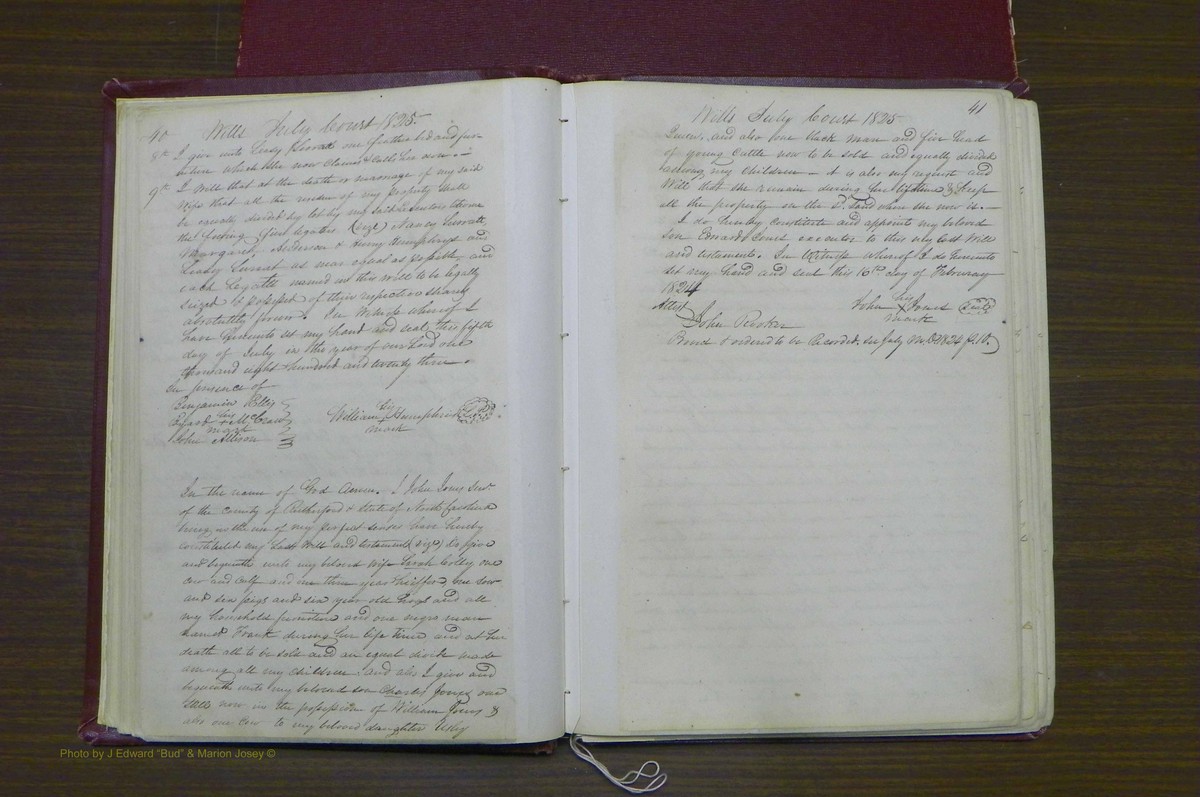 40 Wills July Court 1825
8th I give unto Leady Sorratt one feather bed and fur-
niture which She now Claims & Calls her own.—
9th I Will that at the death or marriage of my said
Wife that all the residue of my property shall
be equally divided by lot by my said Executors between
the following five legatees (viz) Nancy Surratt
Margaret, Anderson & Henry Humphries and
Leady Surratt as near equal as possible, and
each legatee named in this will to be legally
seized & possessed of their respective shares
absolutely forever. In Witness whereof I
have hereunto set my hand and seal this fifth
day of July in the year of our Lord one
thousand eight hundred and twenty three.
In presence of
Benjamin Ellis
his
McCraw
mark
John Allison
his
William Humphries Seal
mark
In the name of God Amen. I John Jones Senr
of the county of Rutherford & State of North Carolina
being in the use of my perfect senses have hereby
constituted my Last Will and testament (viz) do give
and bequeath unto my beloved wife Sarah one
cow and calf and one three year old heiffer, one sow
and six pigs and six year old hogs and all
my household furniture and one negro man
named Frank during her life time and at her
death all to be sold and an equal divide made
among all my children. and also I give and
bequeath unto my beloved son Charles Jones one
Still now in the possession of William Jones &
also one cow to my beloved daughter
41
Wills July Court 1825
and also one black man and five head
of young Cattle now to be sold and equally divided
among my children — it is also my request and
Will that she remain during her lifetime & keep
all the property on the Sd. Land where she now is.—
I do hereby constitute and appoint my beloved
son Edward Jones executor to this my last Will
and testament. In Witness whereof I do hereunto
set my hand and seal this 16th day of February
1824
his
John Jones Seal
mark
Attest
John
& ordered to be Recorded. See July 1824 P.10.
Photo by J Edward "Bud" & Marion Josey ©